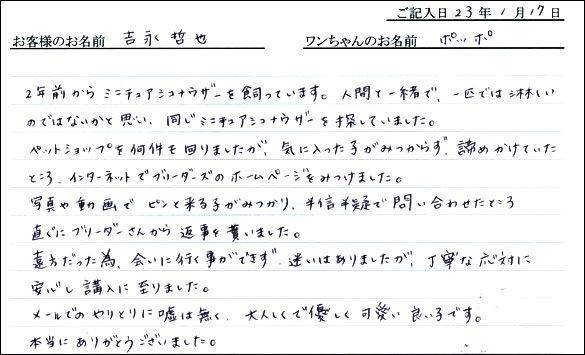 ご記入日 23年 1月 17日
お客様のお名前 吉永 哲也 ワンちゃんのお名前 ポッポ
2年前からミニチュアシュナウザーを飼っています。人間と一緒で、一匹では淋しい
のではないかと思い、同じミニチュアシュナウザーを探していました。
ペットショップを何件も回りましたが、気に入った子がみつからず、諦めかけていた
ところ、インターネットでブリーダーズのホームページをみつけました。
写真や動画でピンと来る子がみつかり、半信半疑で問い合わせたところ
直ぐにブリーダーさんから返事を貰いました。
遠方だった為、会いに行く事ができず、迷いはありましたが、丁寧な応対に
安心し講入に至りました。
メールでのやりとりに嘘は無く、大人しくて優しく可愛い良い子です。
本当にありがとうございました。